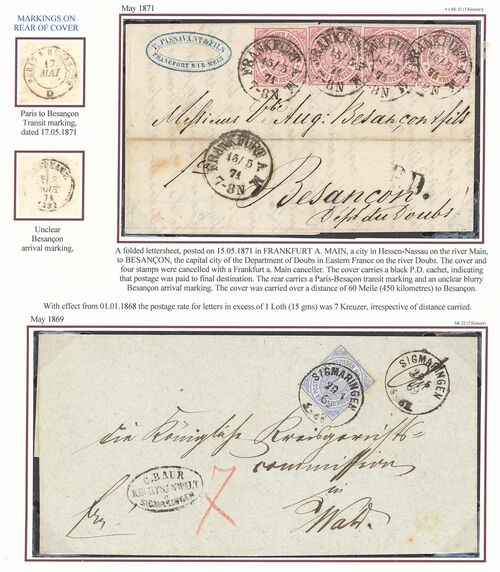 MARKINGS ON
REAR OF COVER
May 1871
4 x Mi 21 (3 Kreuzer)
PARIS A BESANÇON
17
MAI
D
Paris to
Besançon
Transit marking,
dated 17.05.1871
71
Unclear
Besançon
arrival marking,
E. PASSAVANT & FILS
FRANCFORT S/LE MEIN
FRANKFURT A. M.
15/5
71
7-8N
FRANKFURT A. M.
15/5
71
7-8N
FRANKFURT A. M.
15/5
71
7-8N
FRANKFURT A. M.
15/5
71
7-8N
Messieurs Vve Aug: Besançon & fils
FRANKFURT A. M.
15/5
71
7-8N
P.D.
Besançon
Dépt du Doubs
A folded lettersheet, posted on 15.05.1871 in FRANKFURT A. MAIN, a city in Hessen-Nassau on the river Main,
to BESANÇON, the capital city of the Department of Doubs in Eastern France on the river Doubs. The cover and
four stamps were cancelled with a Frankfurt a. Main canceller. The cover carries a black P.D. cachet, indicating
that postage was paid to final destination. The rear carries a Paris-Besançon transit marking and an unclear blurry
Besançon arrival marking. The cover was carried over a distance of 60 Meile (450 kilometres) to Besançon.
With effect from 01.01.1868 the postage rate for letters in excess of 1 Loth (15 gms) was 7 Kreuzer, irrespective of distance carried.
May 1869
Mi 22 (7 Kreuzer)
SIGMARINGEN
29
69
SIGMARINGEN
29
69
Die Königliche Kreisgerichts-
commission
in
Wald.
C. BAUR
RECHTSANWALT
SIGMARINGEN
7